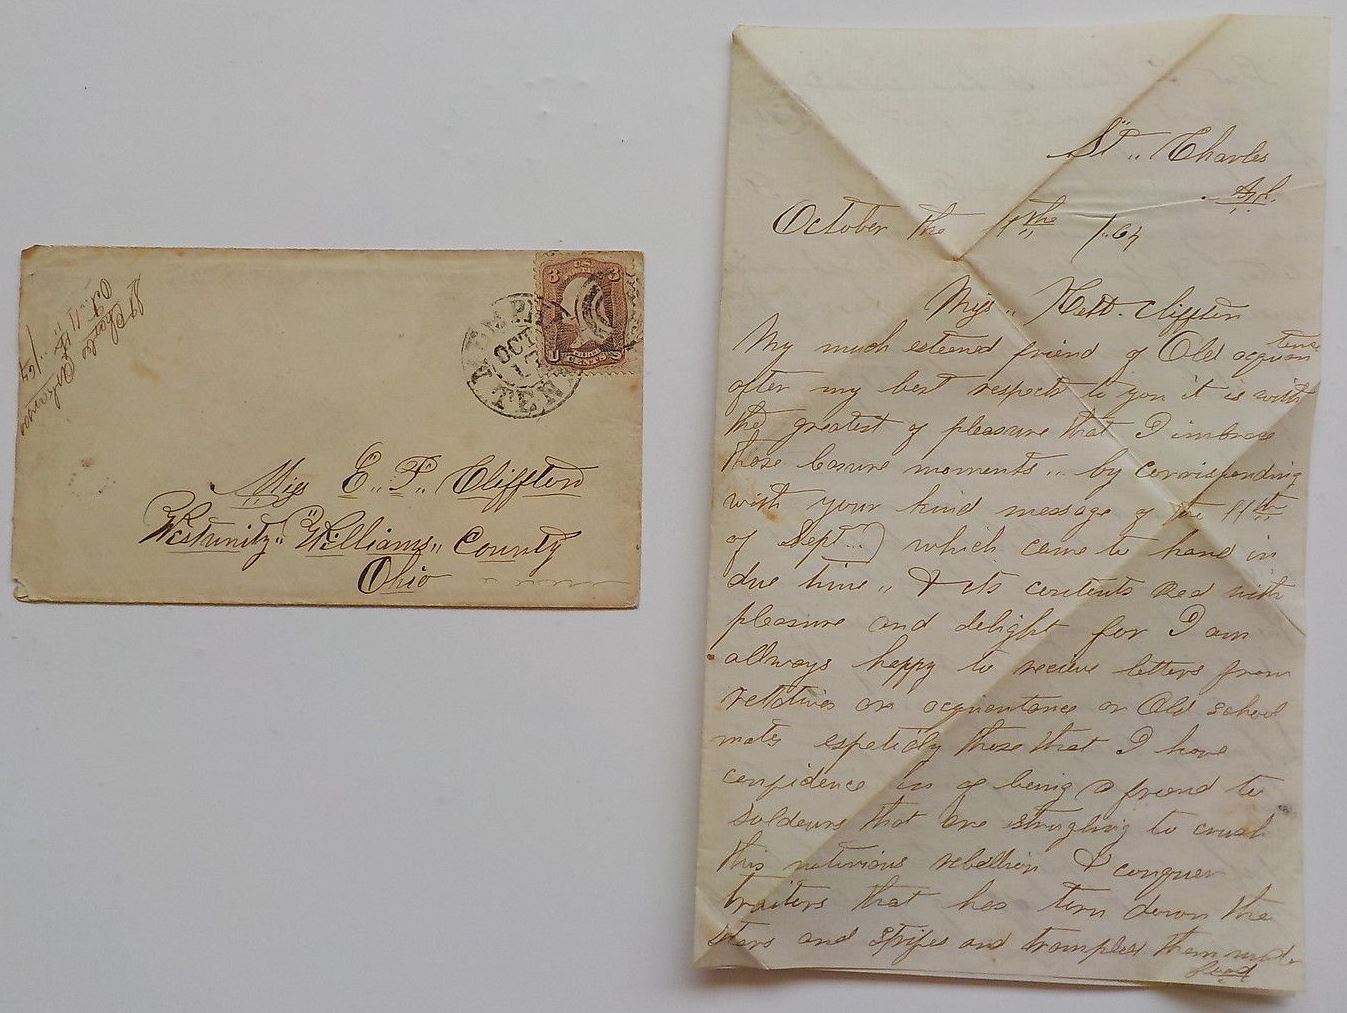 St Charles
Oct 11th Arkansas
/64
U.S.
3 3
CENTS
MEMPHIS
OCT
17
TEN
Miss E.. P.. Cliffton
Westunity.. Williams.. County
Ohio
St.. Charles
Ark.
October the 11th /.64
Miss.. Hett. Cliffton
My much esteemed friend of Old acquantense
after my best respects to you it is with
the greatest of pleasure that I imbrase
those leasure moments... by corrisponding
with your kind message of the 11th
of Sept...) which came to hand in
due time,, & its contents Red with
pleasure and delight for I am
allways happy to recieve letters from
relatives or acquentance or Old school
mates espetialy those that I have
confidence in of being a friend to
soldeurs that are strugling to crush
this notorious rebellion & conquer
traiters that has torn down the
stars and stripes and trampled them under
foot